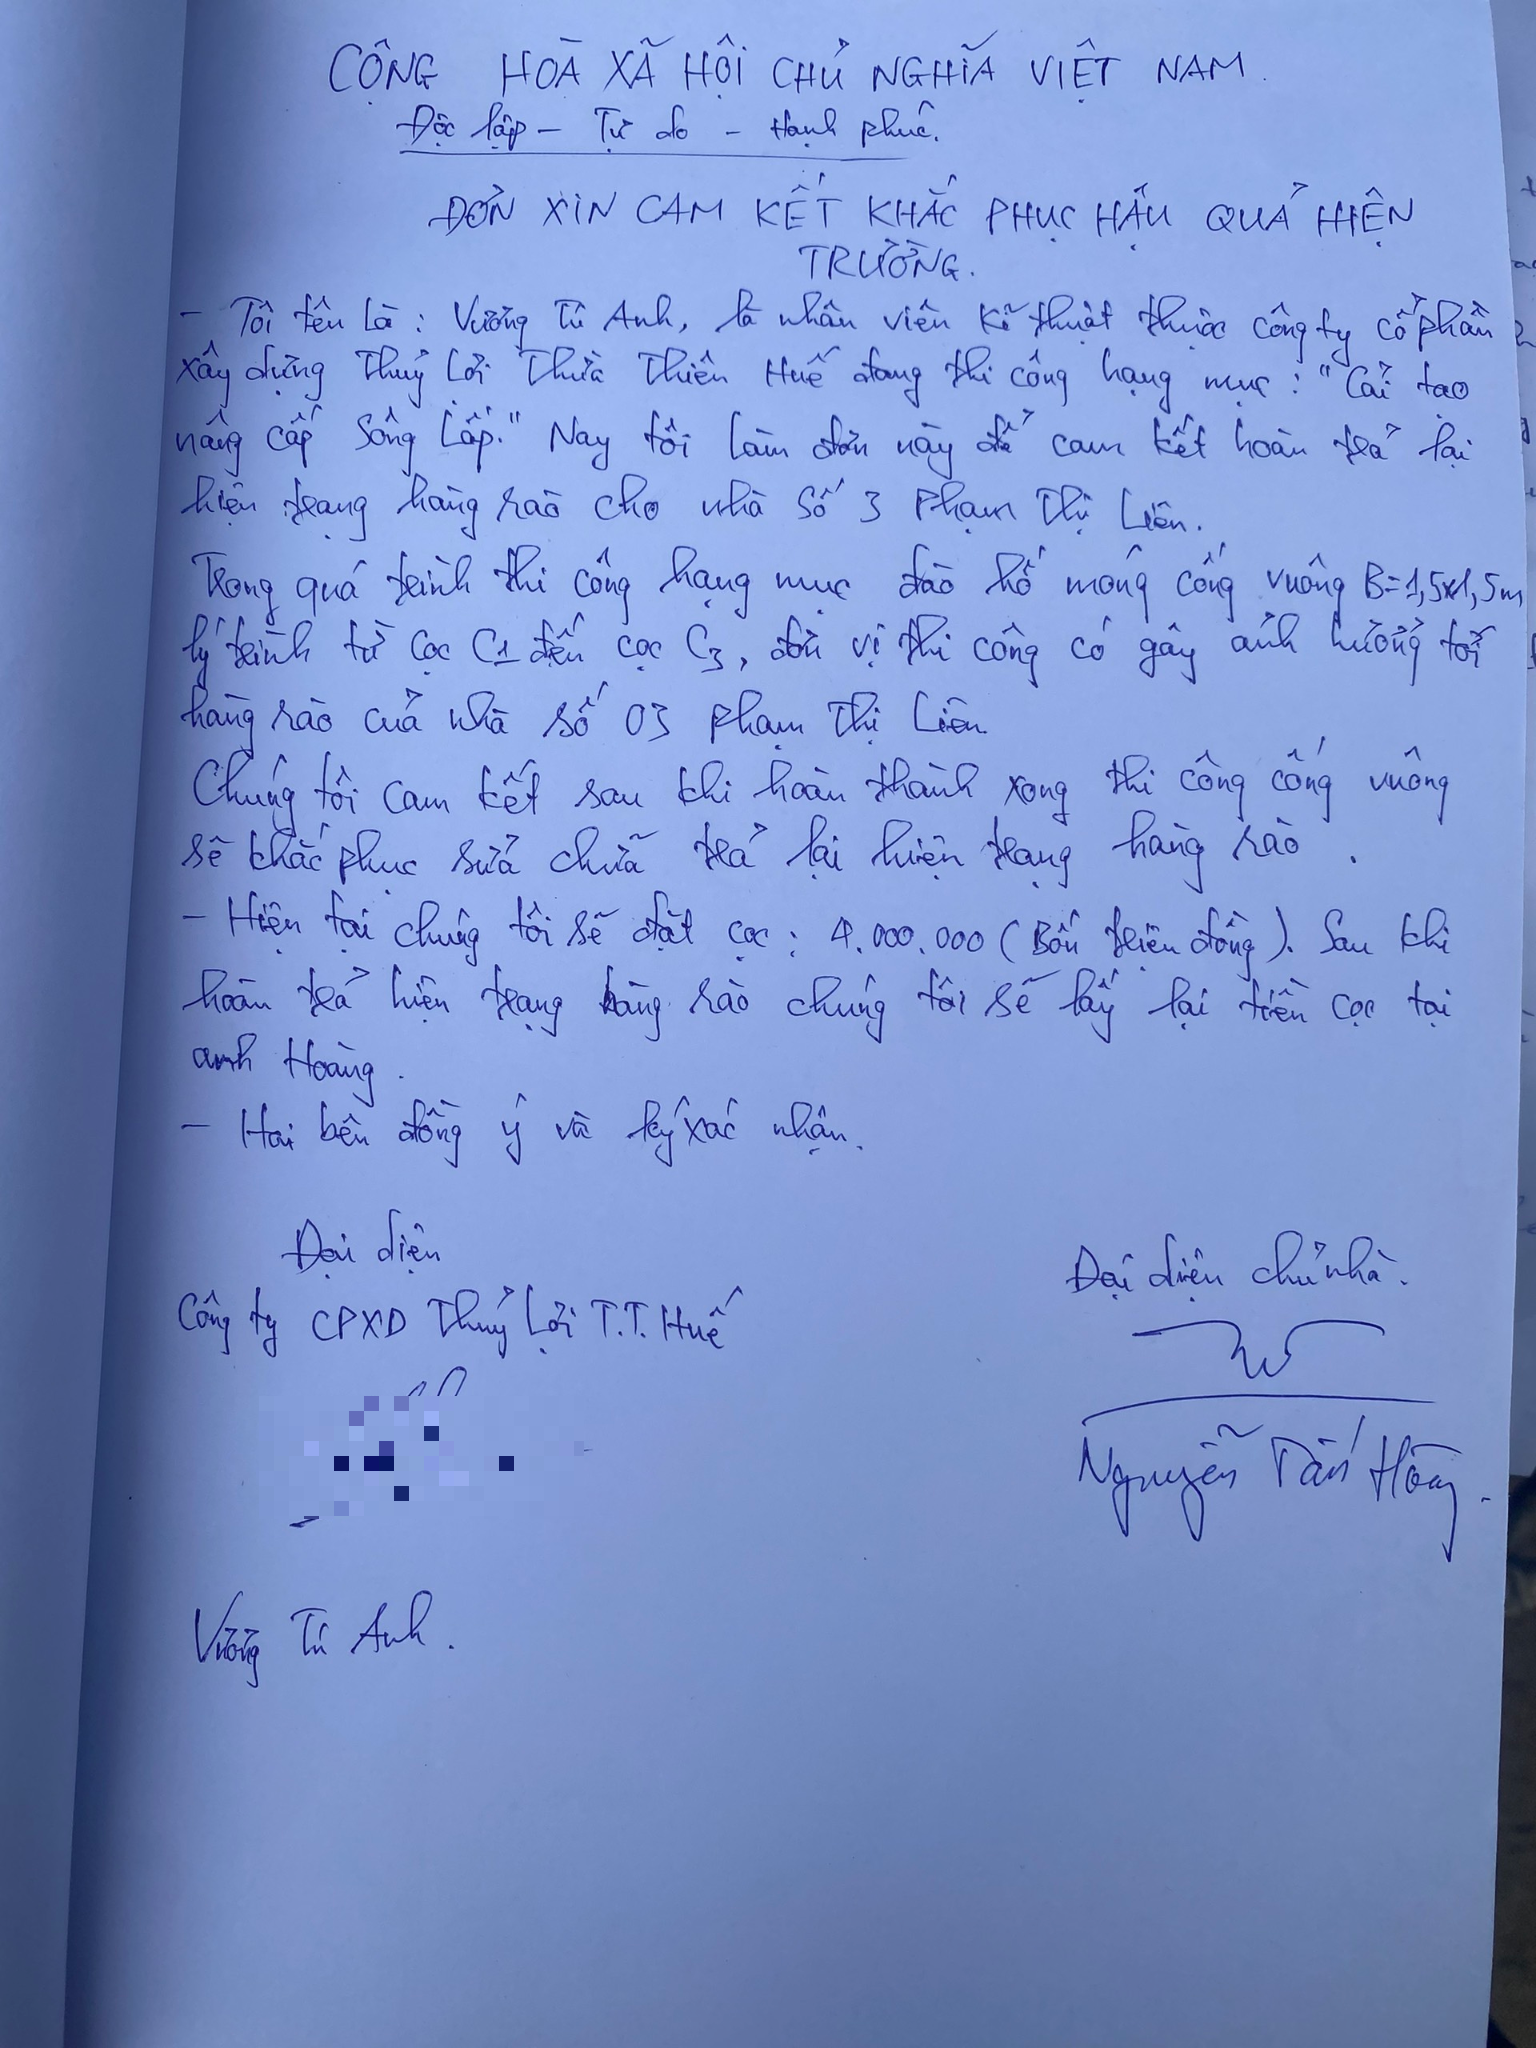 CỘNG HOÀ XÃ HỘI CHỦ NGHĨA VIỆT NAM.
Độc lập - Tự do - Hạnh phúc.
ĐƠN XIN CAM KẾT KHẮC PHỤC HẬU QUẢ HIỆN
TRƯỜNG.
- Tôi tên là: Vương Tú Anh, là nhân viên kĩ thuật thuộc công ty cổ phần
xây dựng Thuỷ Lợi Thừa Thiên Huế đang thi công hạng mục: "Cải tạo
nâng cấp sông Lấp." Nay tôi làm đơn này để cam kết hoàn trả lại
hiện trạng hàng rào cho nhà số 3 Phạm Thị Liên.
Trong quá trình thi công hạng mục đào hố móng cống vuông B=1,5x1,5m
lý trình từ cọc C1 đến cọc C3, đơn vị thi công có gây ảnh hưởng tới
hàng rào của nhà số 03 Phạm Thị Liên.
Chúng tôi cam kết sau khi hoàn thành xong thi công cống vuông
sẽ khắc phục sửa chữa trả lại hiện trạng hàng rào.
- Hiện tại chúng tôi sẽ đặt cọc: 4.000.000 (Bốn triệu đồng). Sau khi
hoàn trả hiện trạng hàng rào chúng tôi sẽ lấy lại tiền cọc tại
anh Hoàng.
- Hai bên đồng ý và ký xác nhận.
Đại diện
Đại diện chủ nhà.
Công ty CPXD Thuỷ Lợi T.T. Huế
Nguyễn Tấn
Vương Tú Anh.